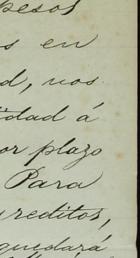 pesos
s en
d, nos
idad á
or plazo
Para
creditos,
quedará